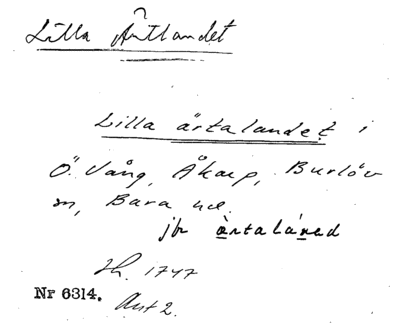 Lilla Ärtlandet
Lilla ärtalandet i
Ö. Vång, Åkarp, Burlöv
sn, Bara hd.
jfr ärtalåned
Sk. 1747
Nr 6314. Akt 2.